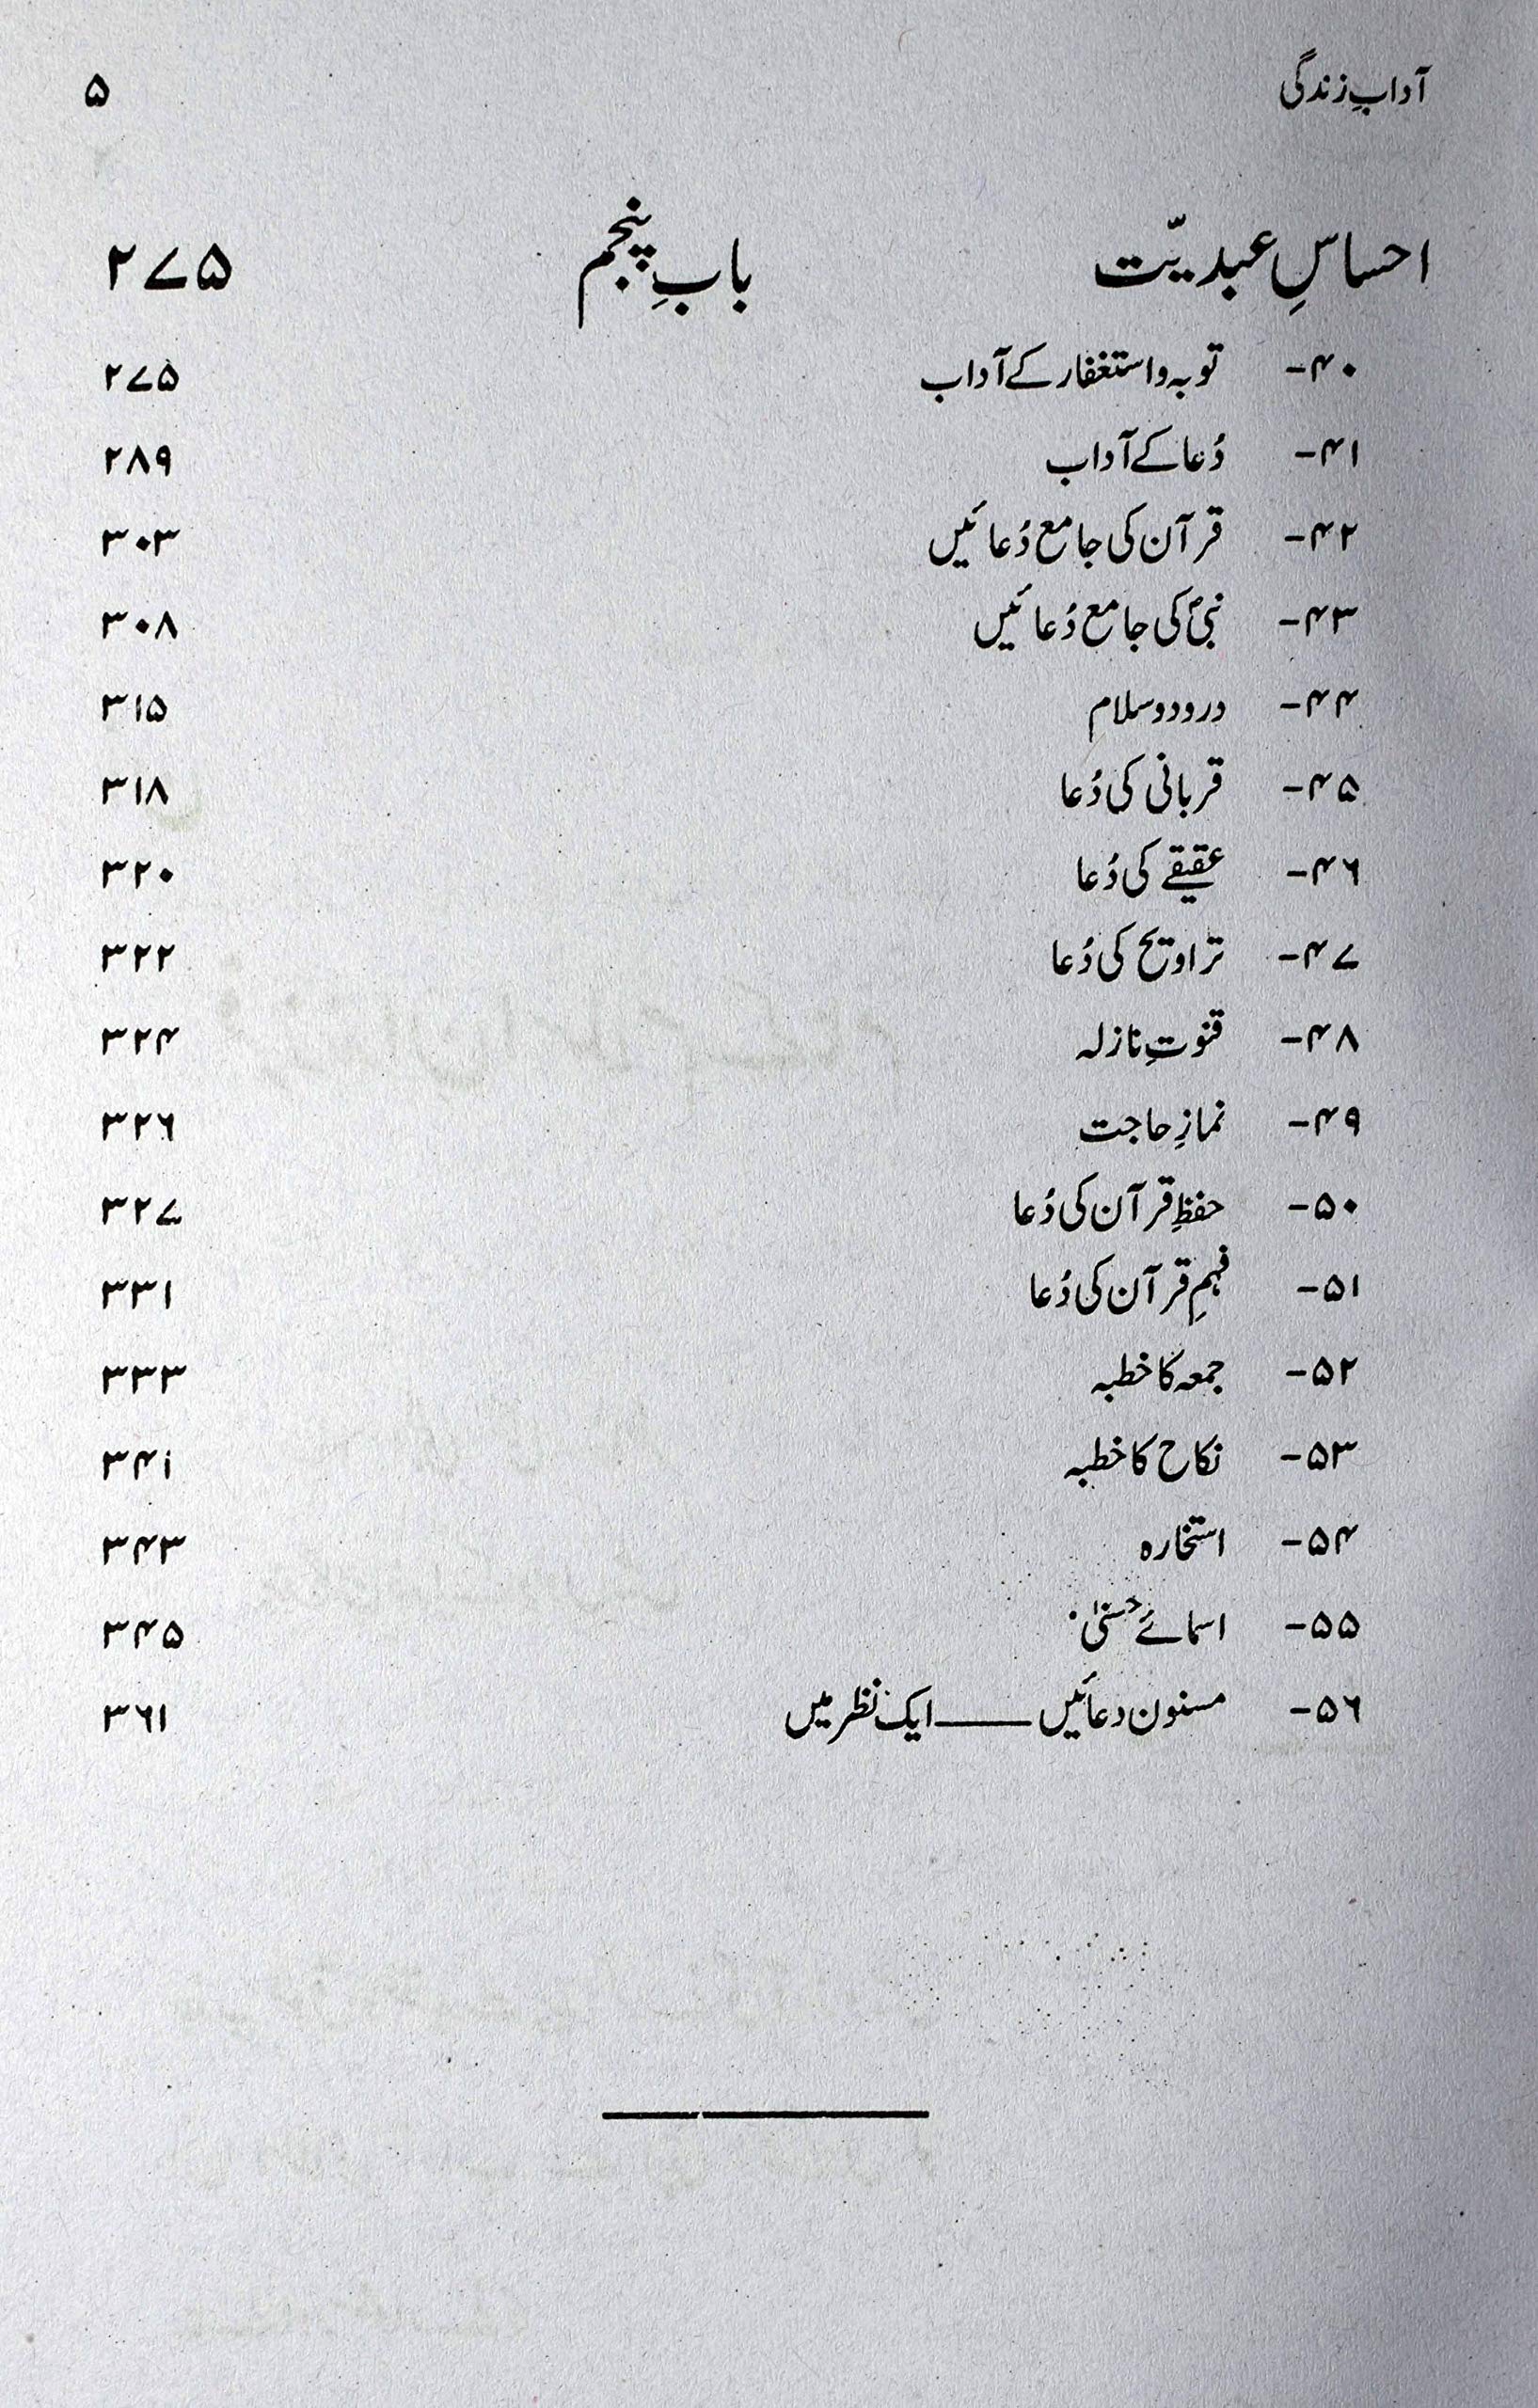 آدابِ زندگی ۵
احساسِ عبدیّت بابِ پنجم ۲۷۵
۴۰- توبہ و استغفار کے آداب ۲۷۵
۴۱- دُعا کے آداب ۲۸۹
۴۲- قرآن کی جامع دُعائیں ۳۰۳
۴۳- نبیؐ کی جامع دُعائیں ۳۰۸
۴۴- درود و سلام ۳۱۵
۴۵- قربانی کی دُعا ۳۱۸
۴۶- عقیقے کی دُعا ۳۲۰
۴۷- تراویح کی دُعا ۳۲۲
۴۸- قنوتِ نازلہ ۳۲۴
۴۹- نمازِ حاجت ۳۲۶
۵۰- حفظِ قرآن کی دُعا ۳۲۷
۵۱- فہمِ قرآن کی دُعا ۳۳۱
۵۲- جمعہ کا خطبہ ۳۳۳
۵۳- نکاح کا خطبہ ۳۴۱
۵۴- استخارہ ۳۴۳
۵۵- اسمائے حسنیٰ ۳۴۵
۵۶- مسنون دعائیں ـــــــ ایک نظر میں ۳۶۱